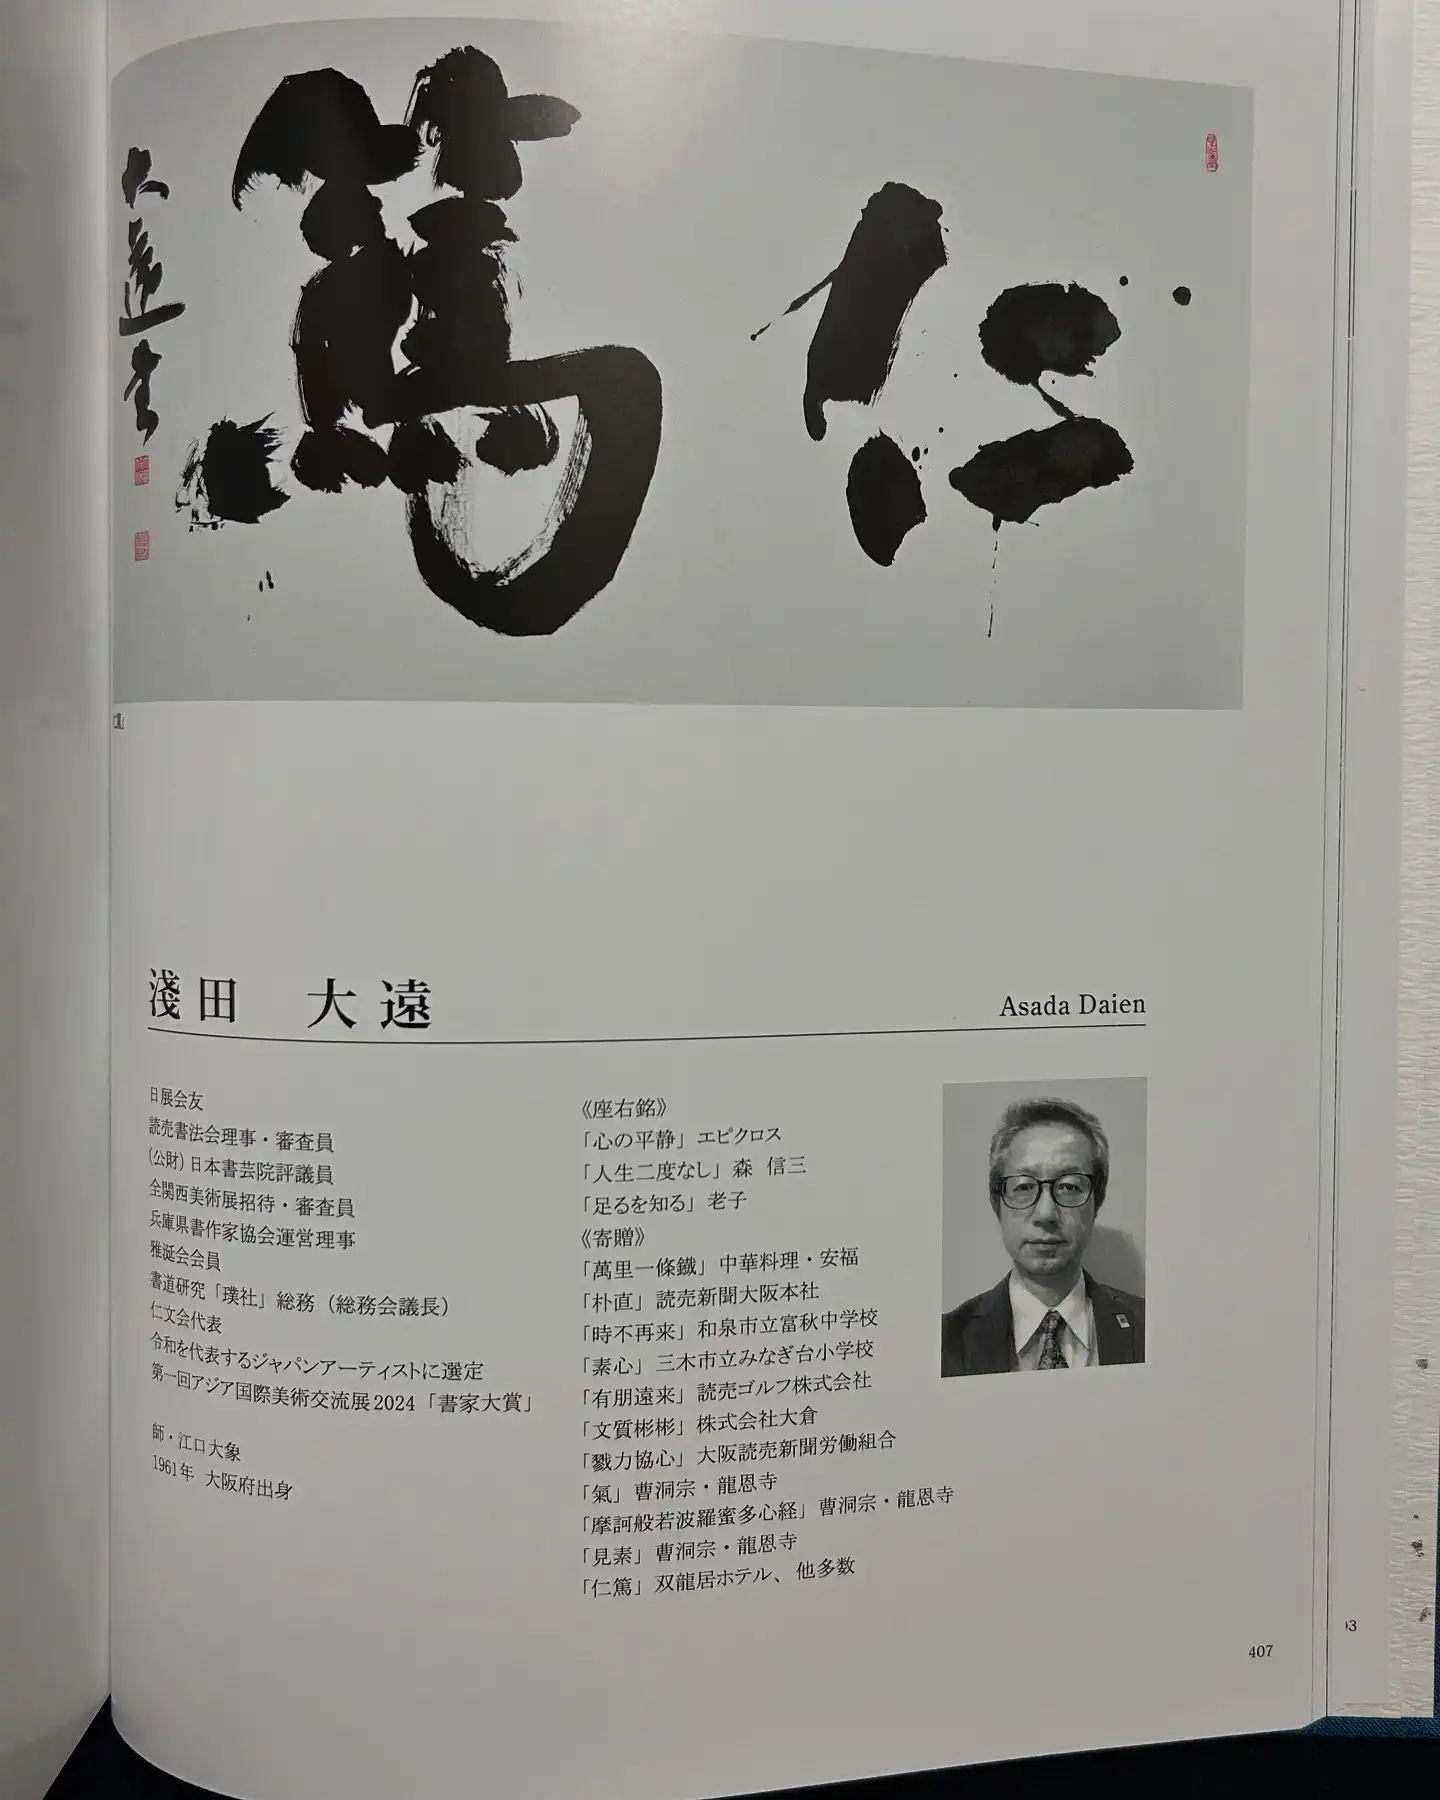 仁篤
大遠書
淺田 大遠
Asada Daien
日展会友
読売書法会理事・審査員
(公財)日本書芸院評議員
全関西美術展招待・審査員
兵庫県書作家協会運営理事
雅涎会会員
書道研究「璞社」総務（総務会議長）
仁文会代表
令和を代表するジャパンアーティストに選定
第一回アジア国際美術交流展2024「書家大賞」
師・江口大象
1961年 大阪府出身
《座右銘》
「心の平静」エピクロス
「人生二度なし」森 信三
「足るを知る」老子
《寄贈》
「萬里一條鐵」中華料理・安福
「朴直」読売新聞大阪本社
「時不再来」和泉市立富秋中学校
「素心」三木市立みなぎ台小学校
「有朋遠来」読売ゴルフ株式会社
「文質彬彬」株式会社大倉
「戮力協心」大阪読売新聞労働組合
「氣」曹洞宗・龍恩寺
「摩訶般若波羅蜜多心経」曹洞宗・龍恩寺
「見素」曹洞宗・龍恩寺
「仁篤」双龍居ホテル、他多数
407